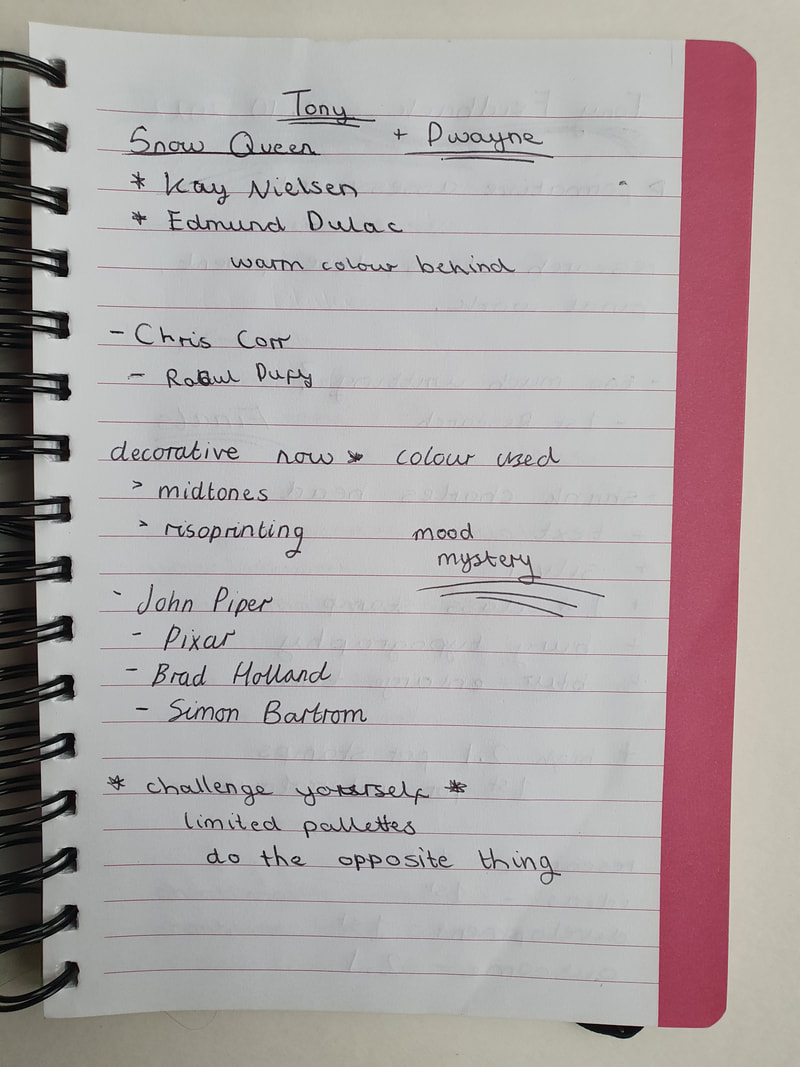 Tony
Snow Queen + Dwayne
* Kay Nielsen
* Edmund Dulac
warm colour behind
- Chris Corr
- Raoul Dufy
decorative now * colour used
> midtones
> risoprinting mood
mystery
- John Piper
- Pixar
- Brad Holland
- Simon Bartrom
* challenge yourself *
limited pallettes
do the opposite thing